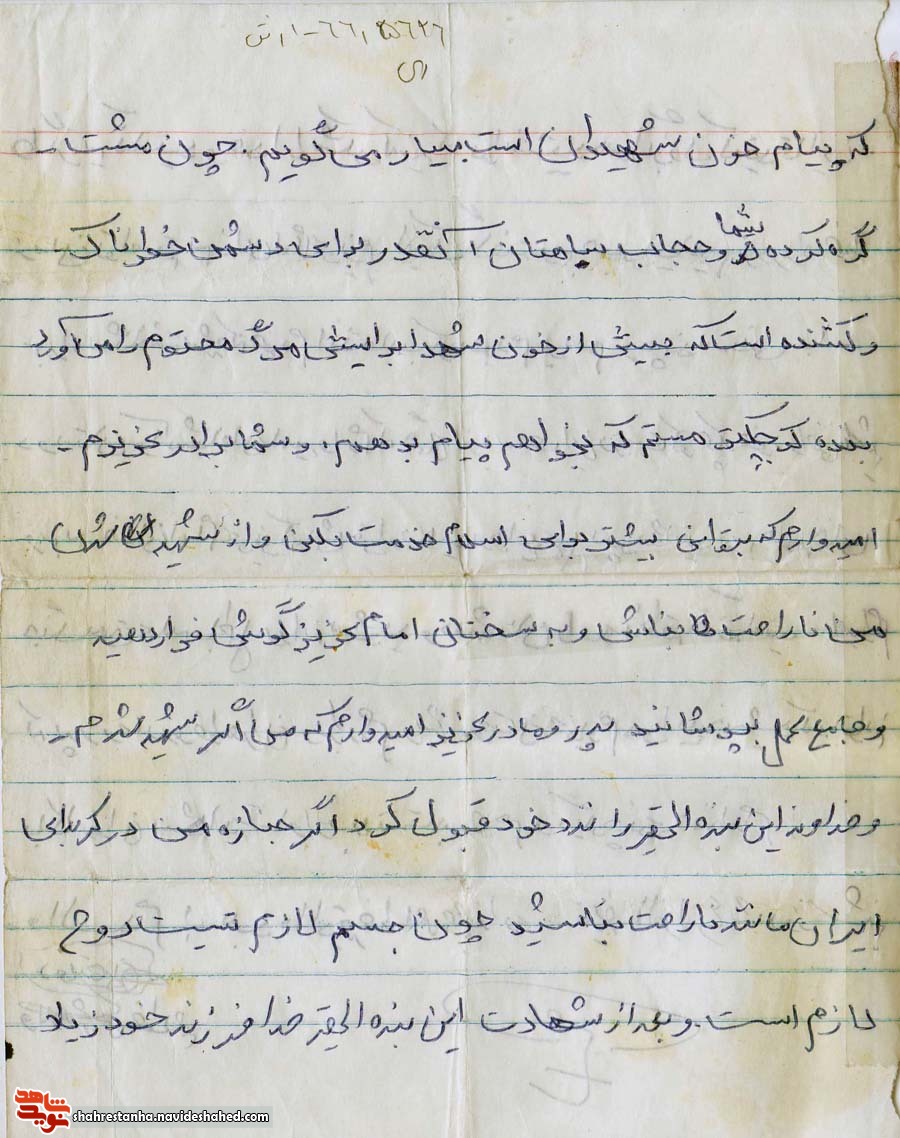 که پیام خون شهیدان است بسیار می گویم. چون مشت
گره کرده شما و حجاب سیاهتان آنقدر برای دشمن خطرناک
و کشنده است که بیش از خون شهدا برایش مرگ محتوم را می آورد
بنده کوچکتر هستم که بخواهم پیام بدهم. و شما برادر عزیزم
امیدوارم که بتوانی بیشتر برای اسلام خدمت بکنی و از شهید شدن
من ناراحت نباشی و به سخنان امام عزیز گوش فرا دهید
و جامع عمل بپوشانید پدر و مادر عزیز امیدوارم که من اگر شهید شدم
و خداوند این بنده الحقیر را نزد خود قبول کرد اگر جنازه من در کربلای
ایران ماند ناراحت نباشید چون جسم لازم نیست روح
لازم است. و بعد از شهادت این بنده الحقیر خدا فرزند خود
نوید شاهد shahrestanha.navideshahed.com